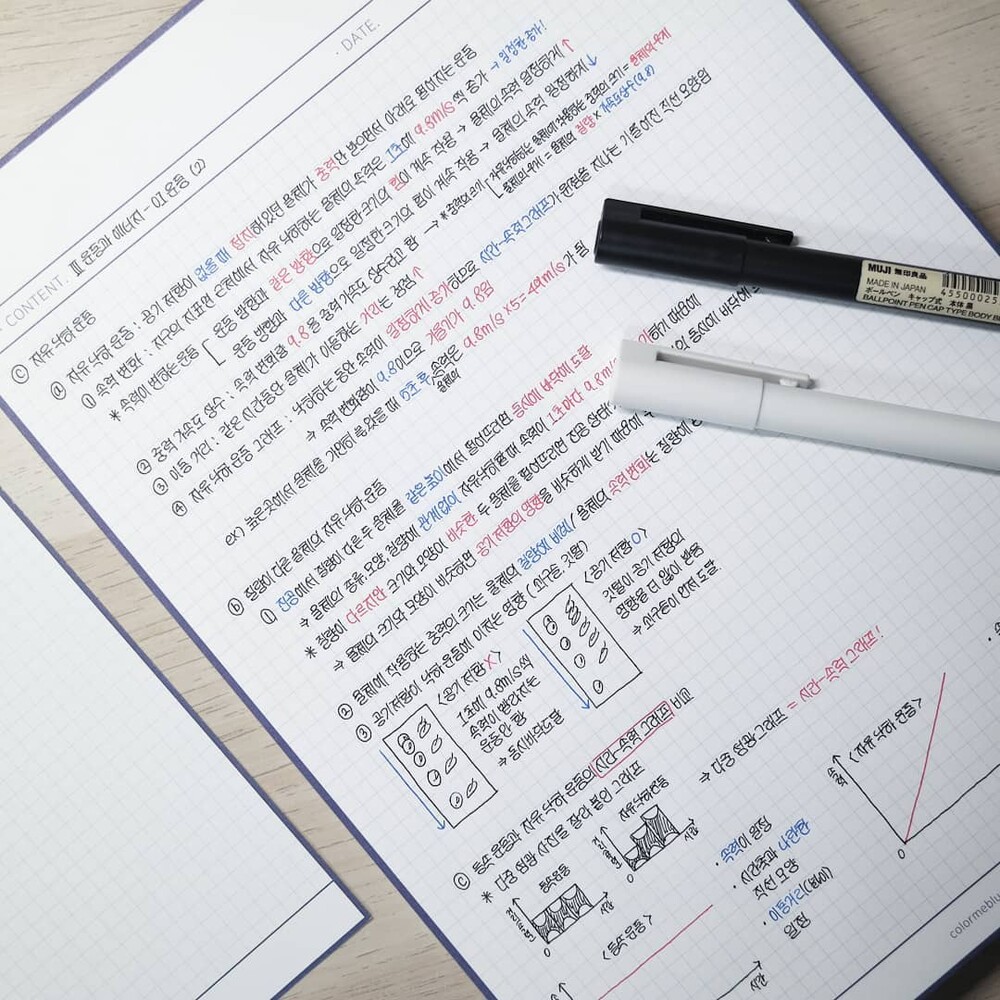 · DATE.
· CONTENT. Ⅲ 운동과 에너지 - 01 운동 (2)
ⓒ 자유 낙하 운동
ⓐ 자유 낙하 운동 : 공기 저항이 없을 때 정지해있던 물체가 중력만 받으면서 아래로 떨어지는 운동
① 속력 변화 : 지구의 지표면 근처에서 자유 낙하하는 물체의 속력은 1초에 9.8m/s 씩 증가 → 일정한 증가!
* 속력이 변하는 운동
운동 방향과 같은 방향으로 일정한 크기의 힘이 계속 작용 → 물체의 속력 일정하게 ↑
운동 방향과 다른 방향으로 일정한 크기의 힘이 계속 작용 → 물체의 속력 일정하게 ↓
② 중력 가속도 상수 : 속력 변화량 9.8을 중력 가속도 상수라고 함 → * 중력의 크기
자유낙하하는 물체에 작용하는 중력의 크기 = 물체의 무게
물체의 무게 = 물체의 질량 × 가속도상수(9.8)
③ 이동 거리 : 같은 시간동안 물체가 이동하는 거리는 점점 ↑
④ 자유 낙하 운동 그래프 : 낙하하는 동안 속력이 일정하게 증가하므로 시간-속력 그래프가 원점을 지나는 기울어진 직선 모양임
→ 속력 변화량이 9.8이므로 기울기가 9.8임
ex) 높은곳에서 물체를 가만히 놓았을 때 5초 후 물체의 속력은 9.8m/s × 5 = 49m/s 가 됨
ⓑ 질량이 다른 물체의 자유 낙하 운동
① 진공에서 질량이 다른 두 물체를 같은 높이에서 떨어뜨리면 동시에 바닥에 도달
→ 물체의 종류, 모양, 질량에 관계없이 자유낙하할 때 속력이 1초마다 9.8m/
하기 때문에
* 질량이 다르지만 크기와 모양이 비슷한 두 물체를 떨어뜨리면 진공 상태
동시에 바닥에
→ 물체의 크기와 모양이 비슷하면 공기 저항의 영향을 비슷하게 받기 때문에
② 물체에 작용하는 중력의 크기는 물체의 질량에 비례 / 물체의 속력 변화는 질량이
③ 공기 저항이 낙하 운동에 미치는 영향 (쇠구슬, 깃털)
<공기 저항 X>
1초에 9.8m/s씩
속력이 빨라지는
운동만 함
→ 동시 바닥도달
<공기 저항 O>
깃털이 공기 저항의
영향을 더 많이 받음
→ 쇠구슬이 먼저 도달
ⓒ 등속 운동과 자유 낙하 운동의 시간-속력 그래프 비교
* 다중 섬광 사진을 잘라 붙인 그래프
→ 다중 섬광 그래프 = 시간-속력 그래프!
등속운동
시간
0
자유낙하운동
시간
0
<등속운동>
· 속력이 일정
· 시간축과 나란한
직선 모양
· 이동거리(넓이)
일정
<자유 낙하 운동>
속력
0
MUJI 無印良品
MADE IN JAPAN
ボールペン キャップ式 本体 黒
BALLPOINT PEN CAP TYPE BODY B
4550002
colormeblu